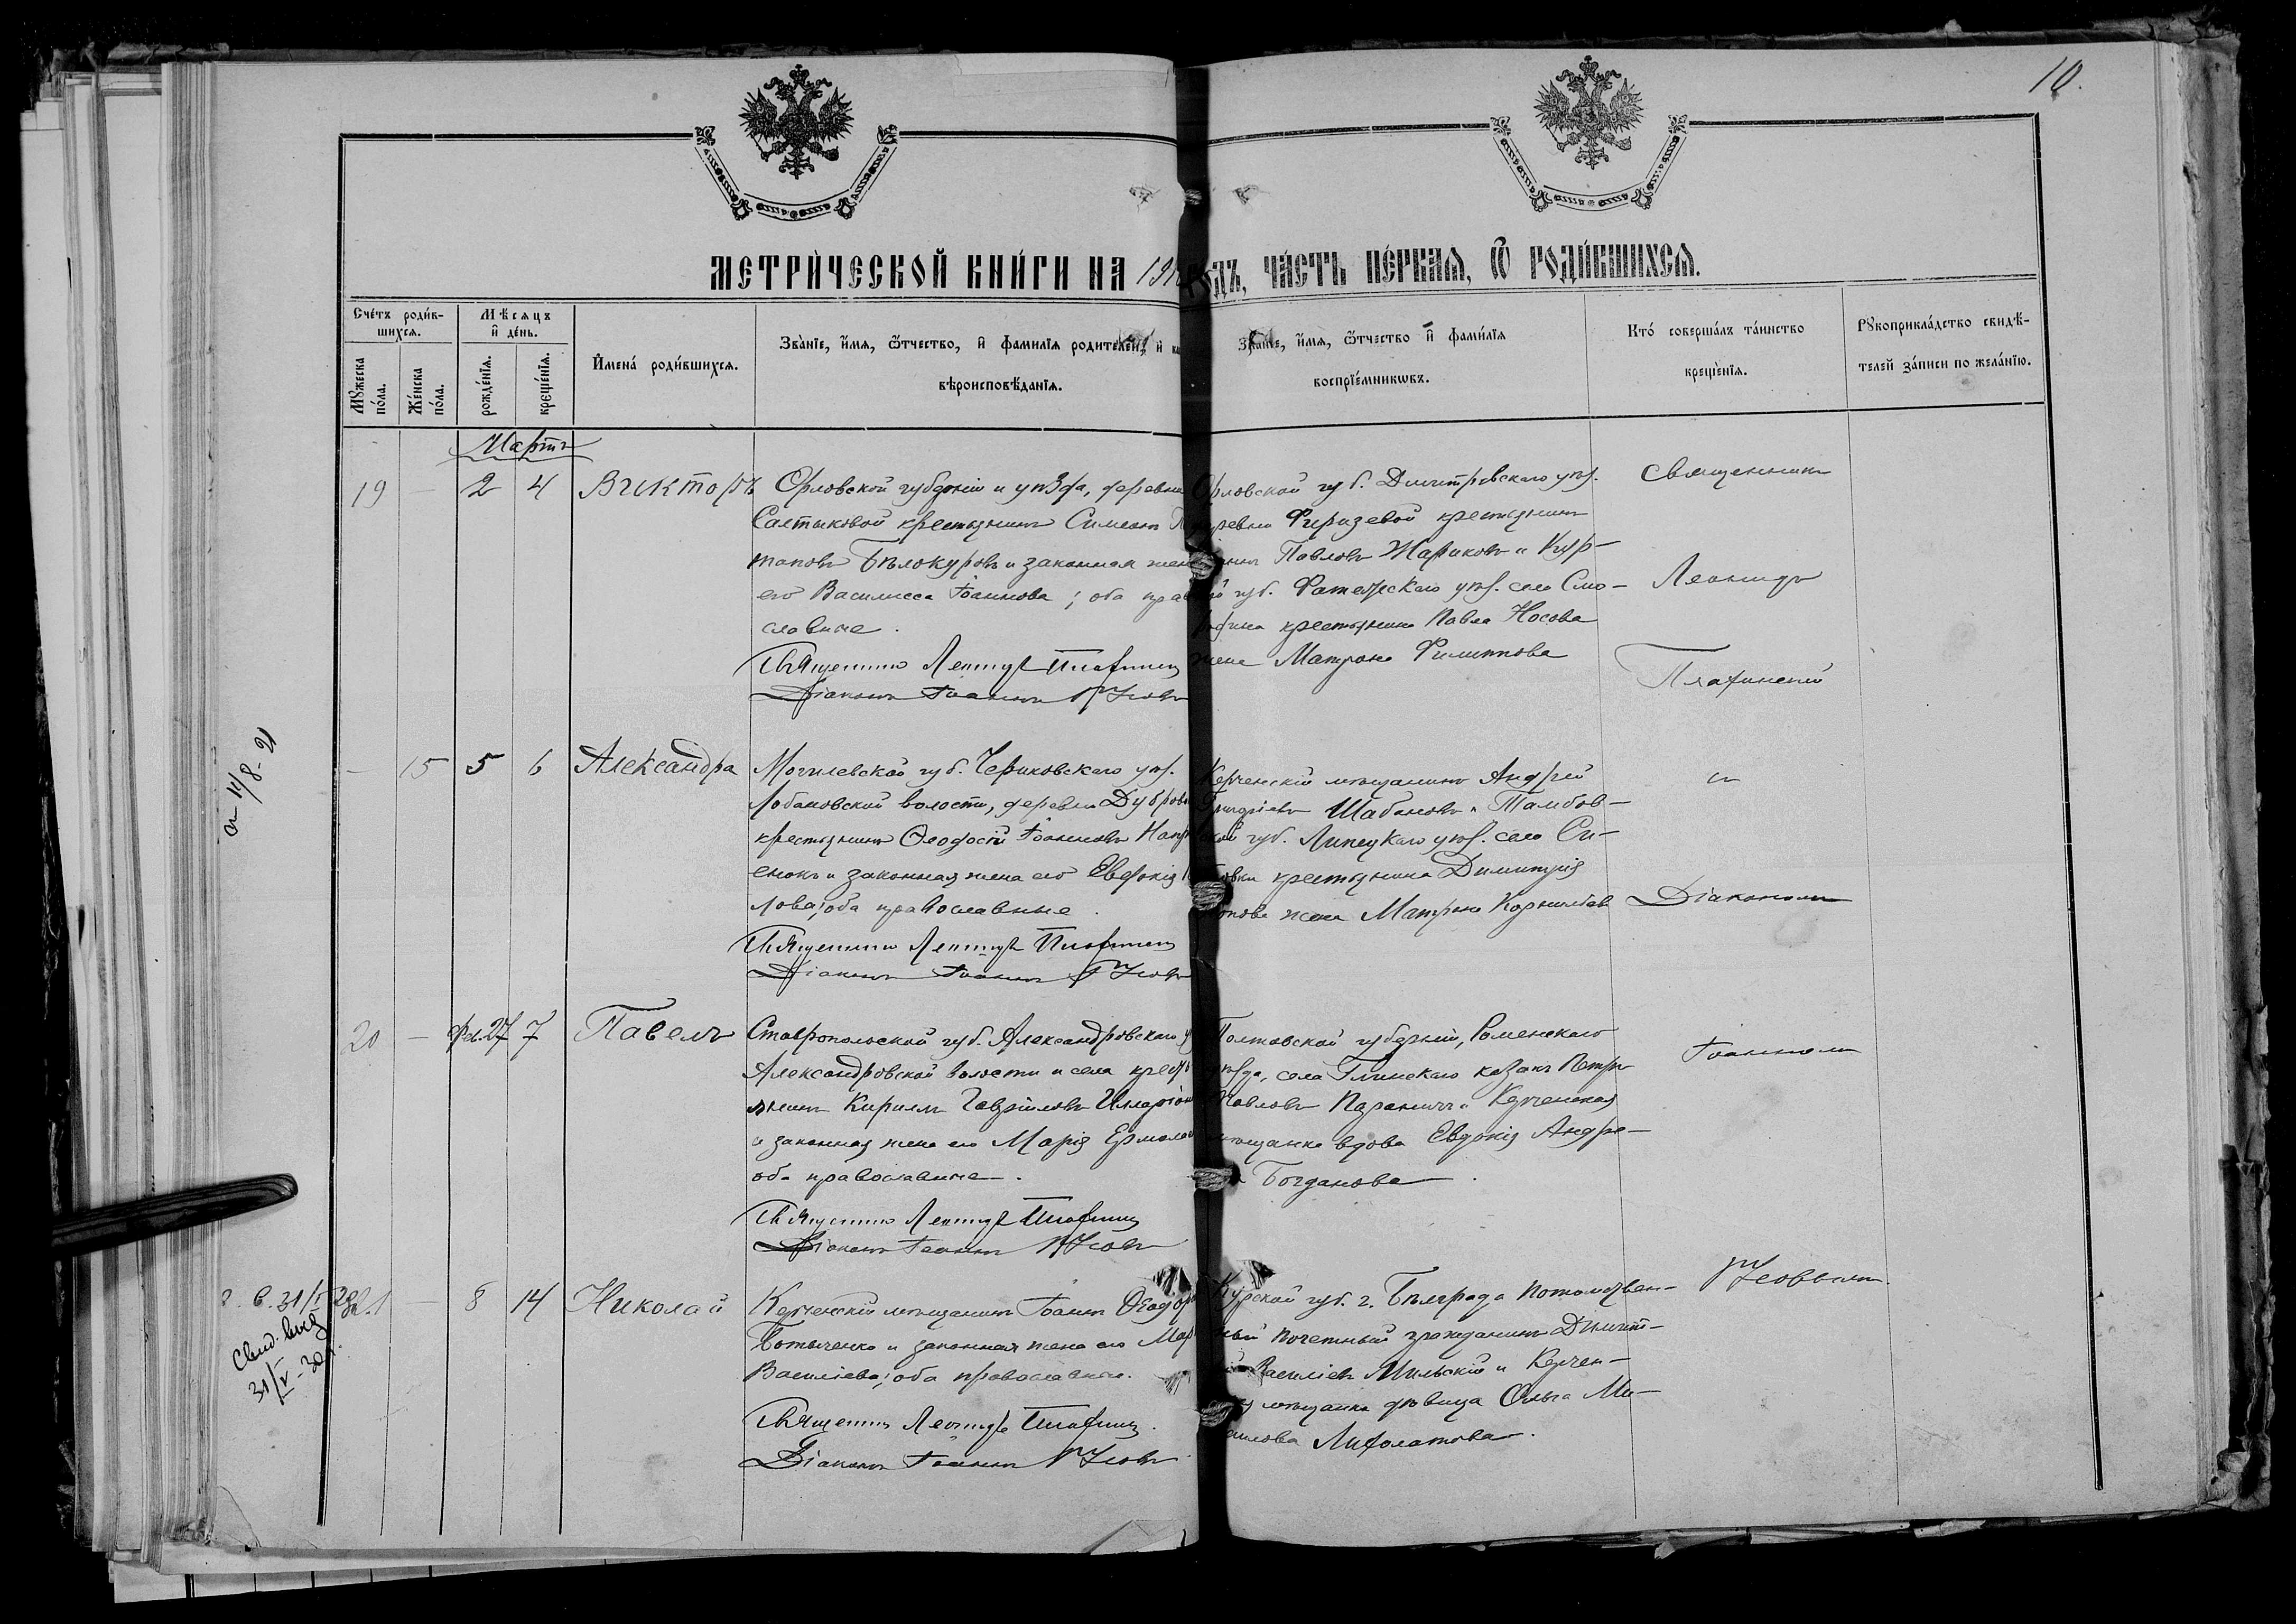 10.
МЕТРИЧЕСКОЙ КНИГИ НА 191 ГОДЪ, ЧАСТЬ ПЕРВАЯ, Ѡ РОДИВШИХСЯ.
Счетъ родив-
шихся.
Мужеска пола.
Женска пола.
Мѣсяцъ
и день.
рожденія.
крещенія.
Имена родившихся.
Званіе, имя, ѿчество, и фамилія родителей, и
вѣроисповѣданія.
Званіе, имя, ѿчество и фамилія
воспріемникѡвъ.
Кто совершалъ таинство
крещенія.
Рукоприкладство свидѣ-
телей записи по желанію.
Мартъ
19 — 2 4 Викторъ
Орловской губерніи и уѣзда, деревни
Салтыковой крестьянинъ Симеонъ
таповъ Бѣлокуровъ и законная жена
его Василисса Іоаннова; оба прав
славные.
Священникъ Леонидъ
Діаконъ Іоаннъ Усовъ
Орловской губ. Димитровскаго уѣз.
деревни Фиризевой крестьянинъ
Павловъ Жариковъ и Кур-
ской губ. Фатежскаго уѣз. села Смо-
крестьянина Павла Носова
жена Матрона Филиппова
Священникъ
Леонидъ
— 15 5 6 Александра
Могилевской губ. Чериковскаго уѣз.
Лобановской волости, деревни Дубров
крестьянинъ Ѳеодосій Іоанновъ
енокъ и законная жена его Евдокія
лова; оба православные.
Священникъ Леонидъ
Діаконъ Іоаннъ Усовъ
Керченскій мѣщанинъ Андрей
Шабановъ и Тамбов-
ской губ. Липецкаго уѣз. села Си-
товки крестьянина Димитрія
жена Матрона Корнилова
и
Діакономъ
20 — Фев. 27 7 Павелъ
Ставропольской губ. Александровскаго у
Александровской волости и села кресть
янинъ Кириллъ Гавріиловъ Илларіон
и законная жена его Марія Ермолае
оба православные.
Священникъ Леонидъ
Діаконъ Іоаннъ Усовъ
Полтавской губерніи, Роменскаго
уѣзда, села Глинскаго казакъ Петръ
Павловъ и Керченская
мѣщанка вдова Евдокія Андре-
Богданова.
Іоанномъ
21 — 8 14 Николай
Керченскій мѣщанинъ Іоаннъ Ѳеодоро
и законная жена его Мар
Василіева; оба православные.
Священникъ Леонидъ
Діаконъ Іоаннъ Усовъ
Курской губ. г. Бѣлграда потомствен-
ный почетный гражданинъ Димит-
рій Василіевъ Мильскій и Керчен-
ская мѣщанка дѣвица Ольга Ми-
хаилова
Усовымъ.